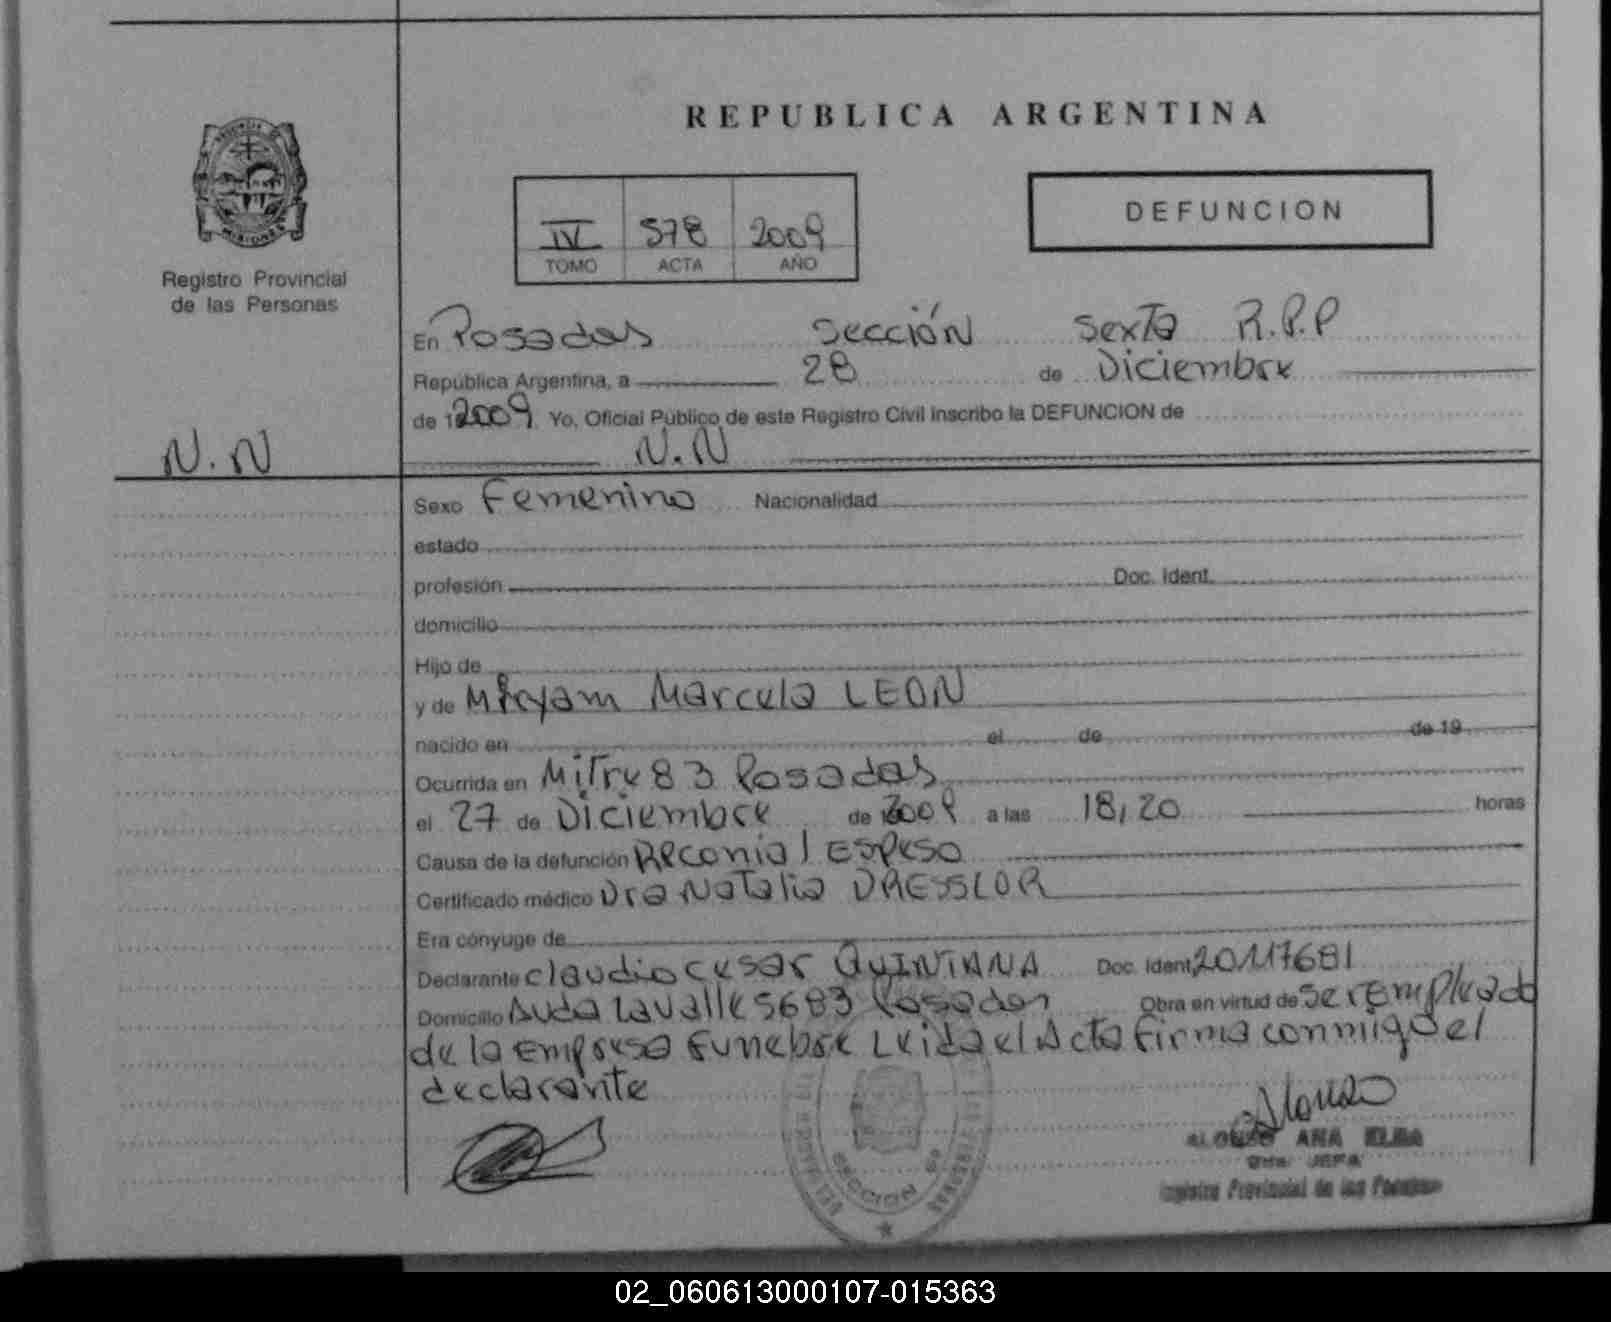 REPUBLICA ARGENTINA
PROVINCIA DE
MISIONES
Registro Provincial
de las Personas
IV 578 2009
TOMO ACTA AÑO
DEFUNCION
En Posadas Sección Sexta R.P.P
República Argentina, a 28 de Diciembre
de 2009 Yo, Oficial Público de este Registro Civil inscribo la DEFUNCION de
N.N
N.N
Sexo Femenino Nacionalidad
estado
profesión Doc. Ident.
domicilio
Hijo de
y de Miryam Marcela LEON
nacido en el de de 19
Ocurrida en Mitre 83 Posadas
el 27 de Diciembre de 2009 a las 18,20 horas
Causa de la defunción Meconial Espeso
Certificado médico Dra Natalia DRESSLOR
Era cónyuge de
Declarante Claudio Cesar QUINTANA Doc. Ident. 20117681
Domicilio Avda Lavalle 5683 Posadas Obra en virtud de ser Empleado
de la Empresa Funebre Leida el Acta Firma conmigo el
declarante
SECCION 6ª
ALONSO ANA ELBA
JEFA
Registro Provincial de las Personas
02_060613000107-015363